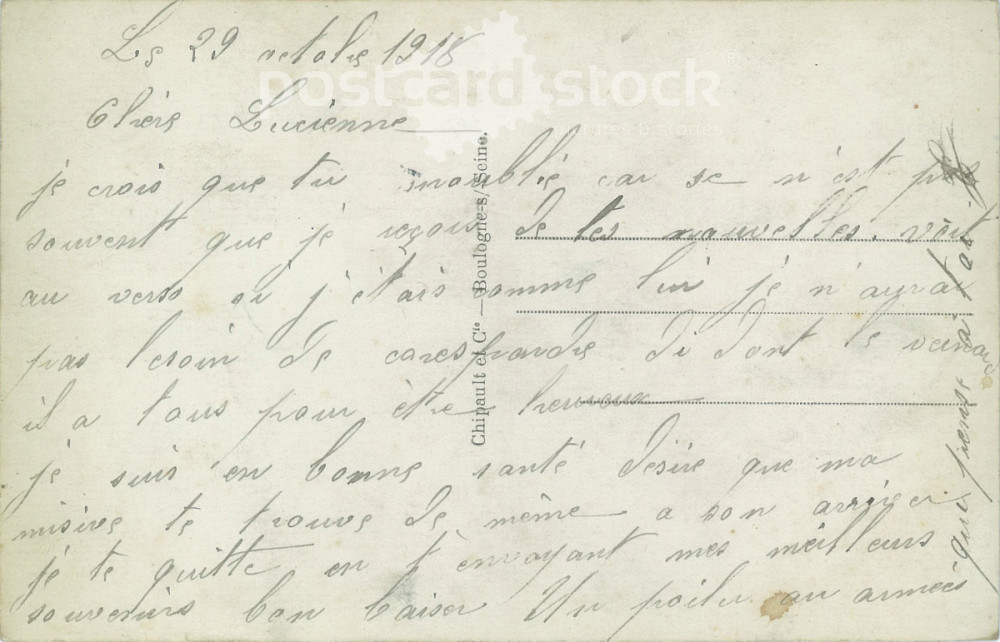 Le 29 octobre 1918
Chère Lucienne
je crois que tu m'oublie car se n'est pas
souvent que je reçois de tes nouvelles. voit
au verso si j'étais comme lui je n'aurai
pas besoin de corespondre di dont le veinard
il a tous pour être heureux
je suis en bonne santé désire que ma
misive te trouve de même a son arriver
je te quitte en t'envoyant mes meilleurs
souvenirs bon baiser Un poilu au armées
qui pense à toi
Chipault et Cie — Boulogne-s/Seine.
postcard stock